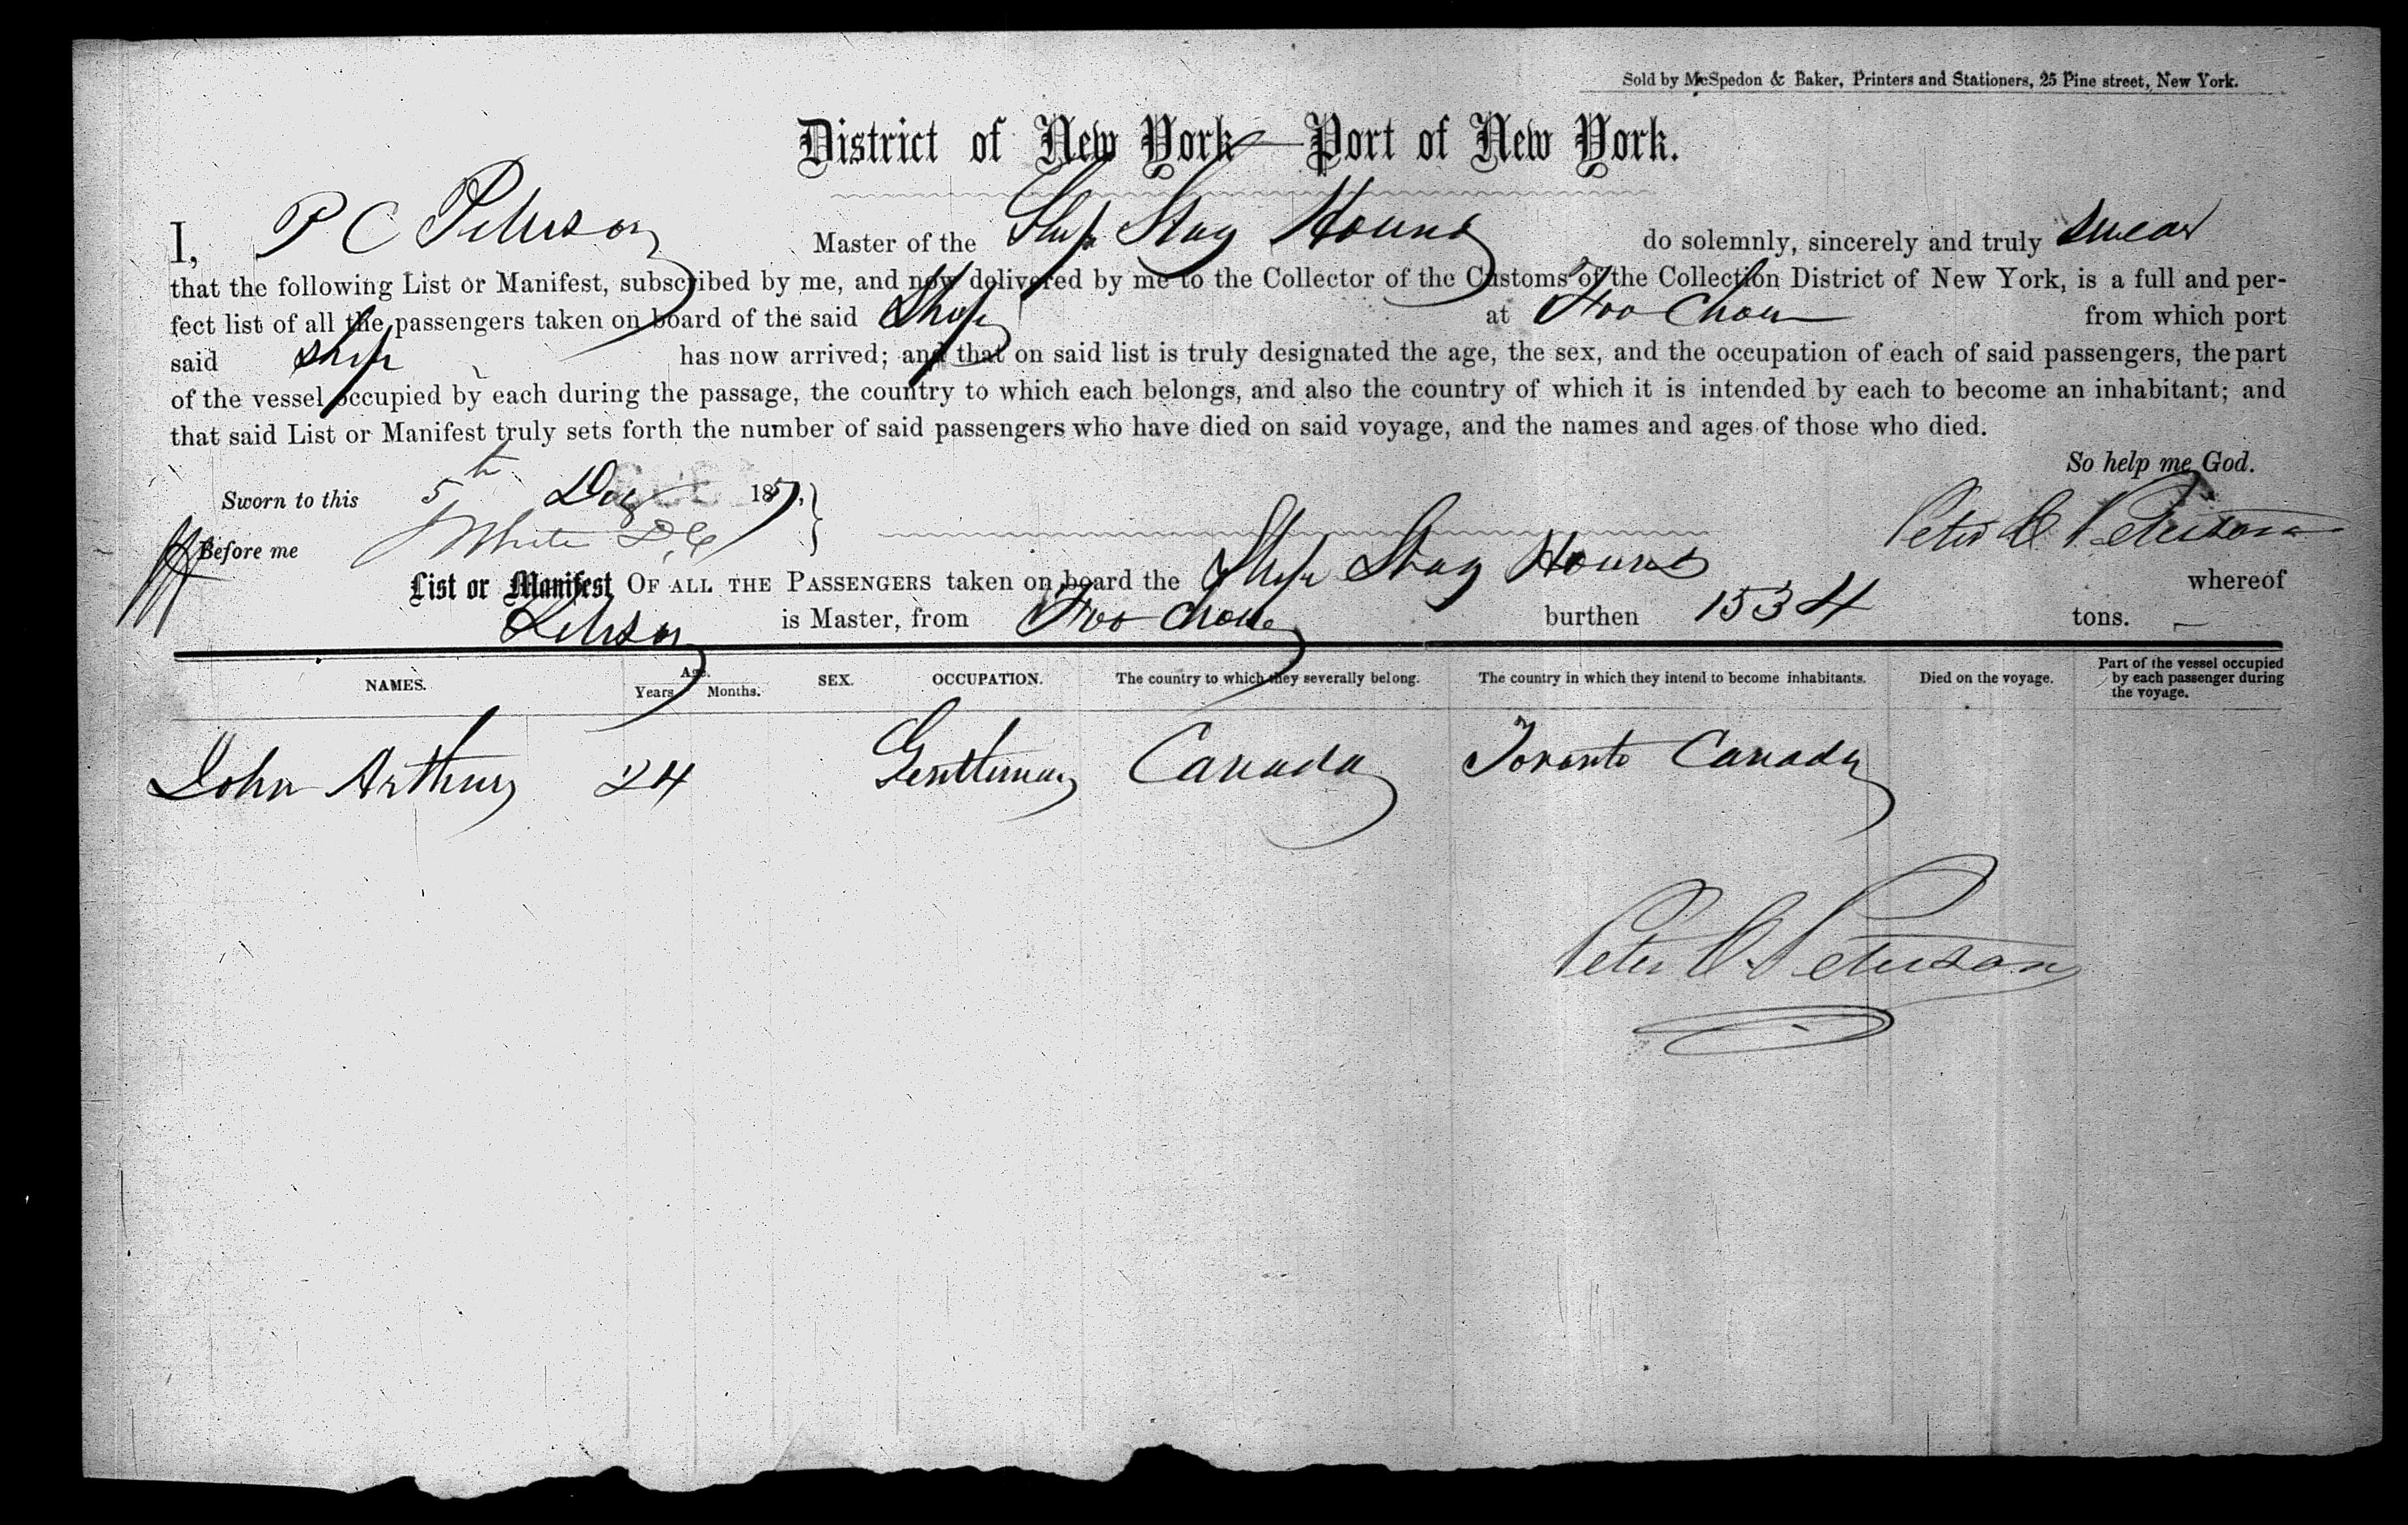 Sold by McSpedon & Baker, Printers and Stationers, 25 Pine street, New York.
District of New York—Port of New York.
I, P C Peterson Master of the Ship Stag Hound do solemnly, sincerely and truly swear
that the following List or Manifest, subscribed by me, and now delivered by me to the Collector of the Customs of the Collection District of New York, is a full and per-
fect list of all the passengers taken on board of the said Ship at Foo Chow from which port
said ship has now arrived; and that on said list is truly designated the age, the sex, and the occupation of each of said passengers, the part
of the vessel occupied by each during the passage, the country to which each belongs, and also the country of which it is intended by each to become an inhabitant; and
that said List or Manifest truly sets forth the number of said passengers who have died on said voyage, and the names and ages of those who died.
So help me God.
Sworn to this 5th 185
Peter C Peterson
Before me White
List or Manifest OF ALL THE PASSENGERS taken on board the Ship Stag Hound whereof
Peterson is Master, from Foo Chow burthen 1534 tons.
NAMES. AGE. Years. Months. SEX. OCCUPATION. The country to which they severally belong. The country in which they intend to become inhabitants. Died on the voyage. Part of the vessel occupied by each passenger during the voyage.
John Arthur 24 Gentleman Canada Toronto Canada
Peter C Peterson